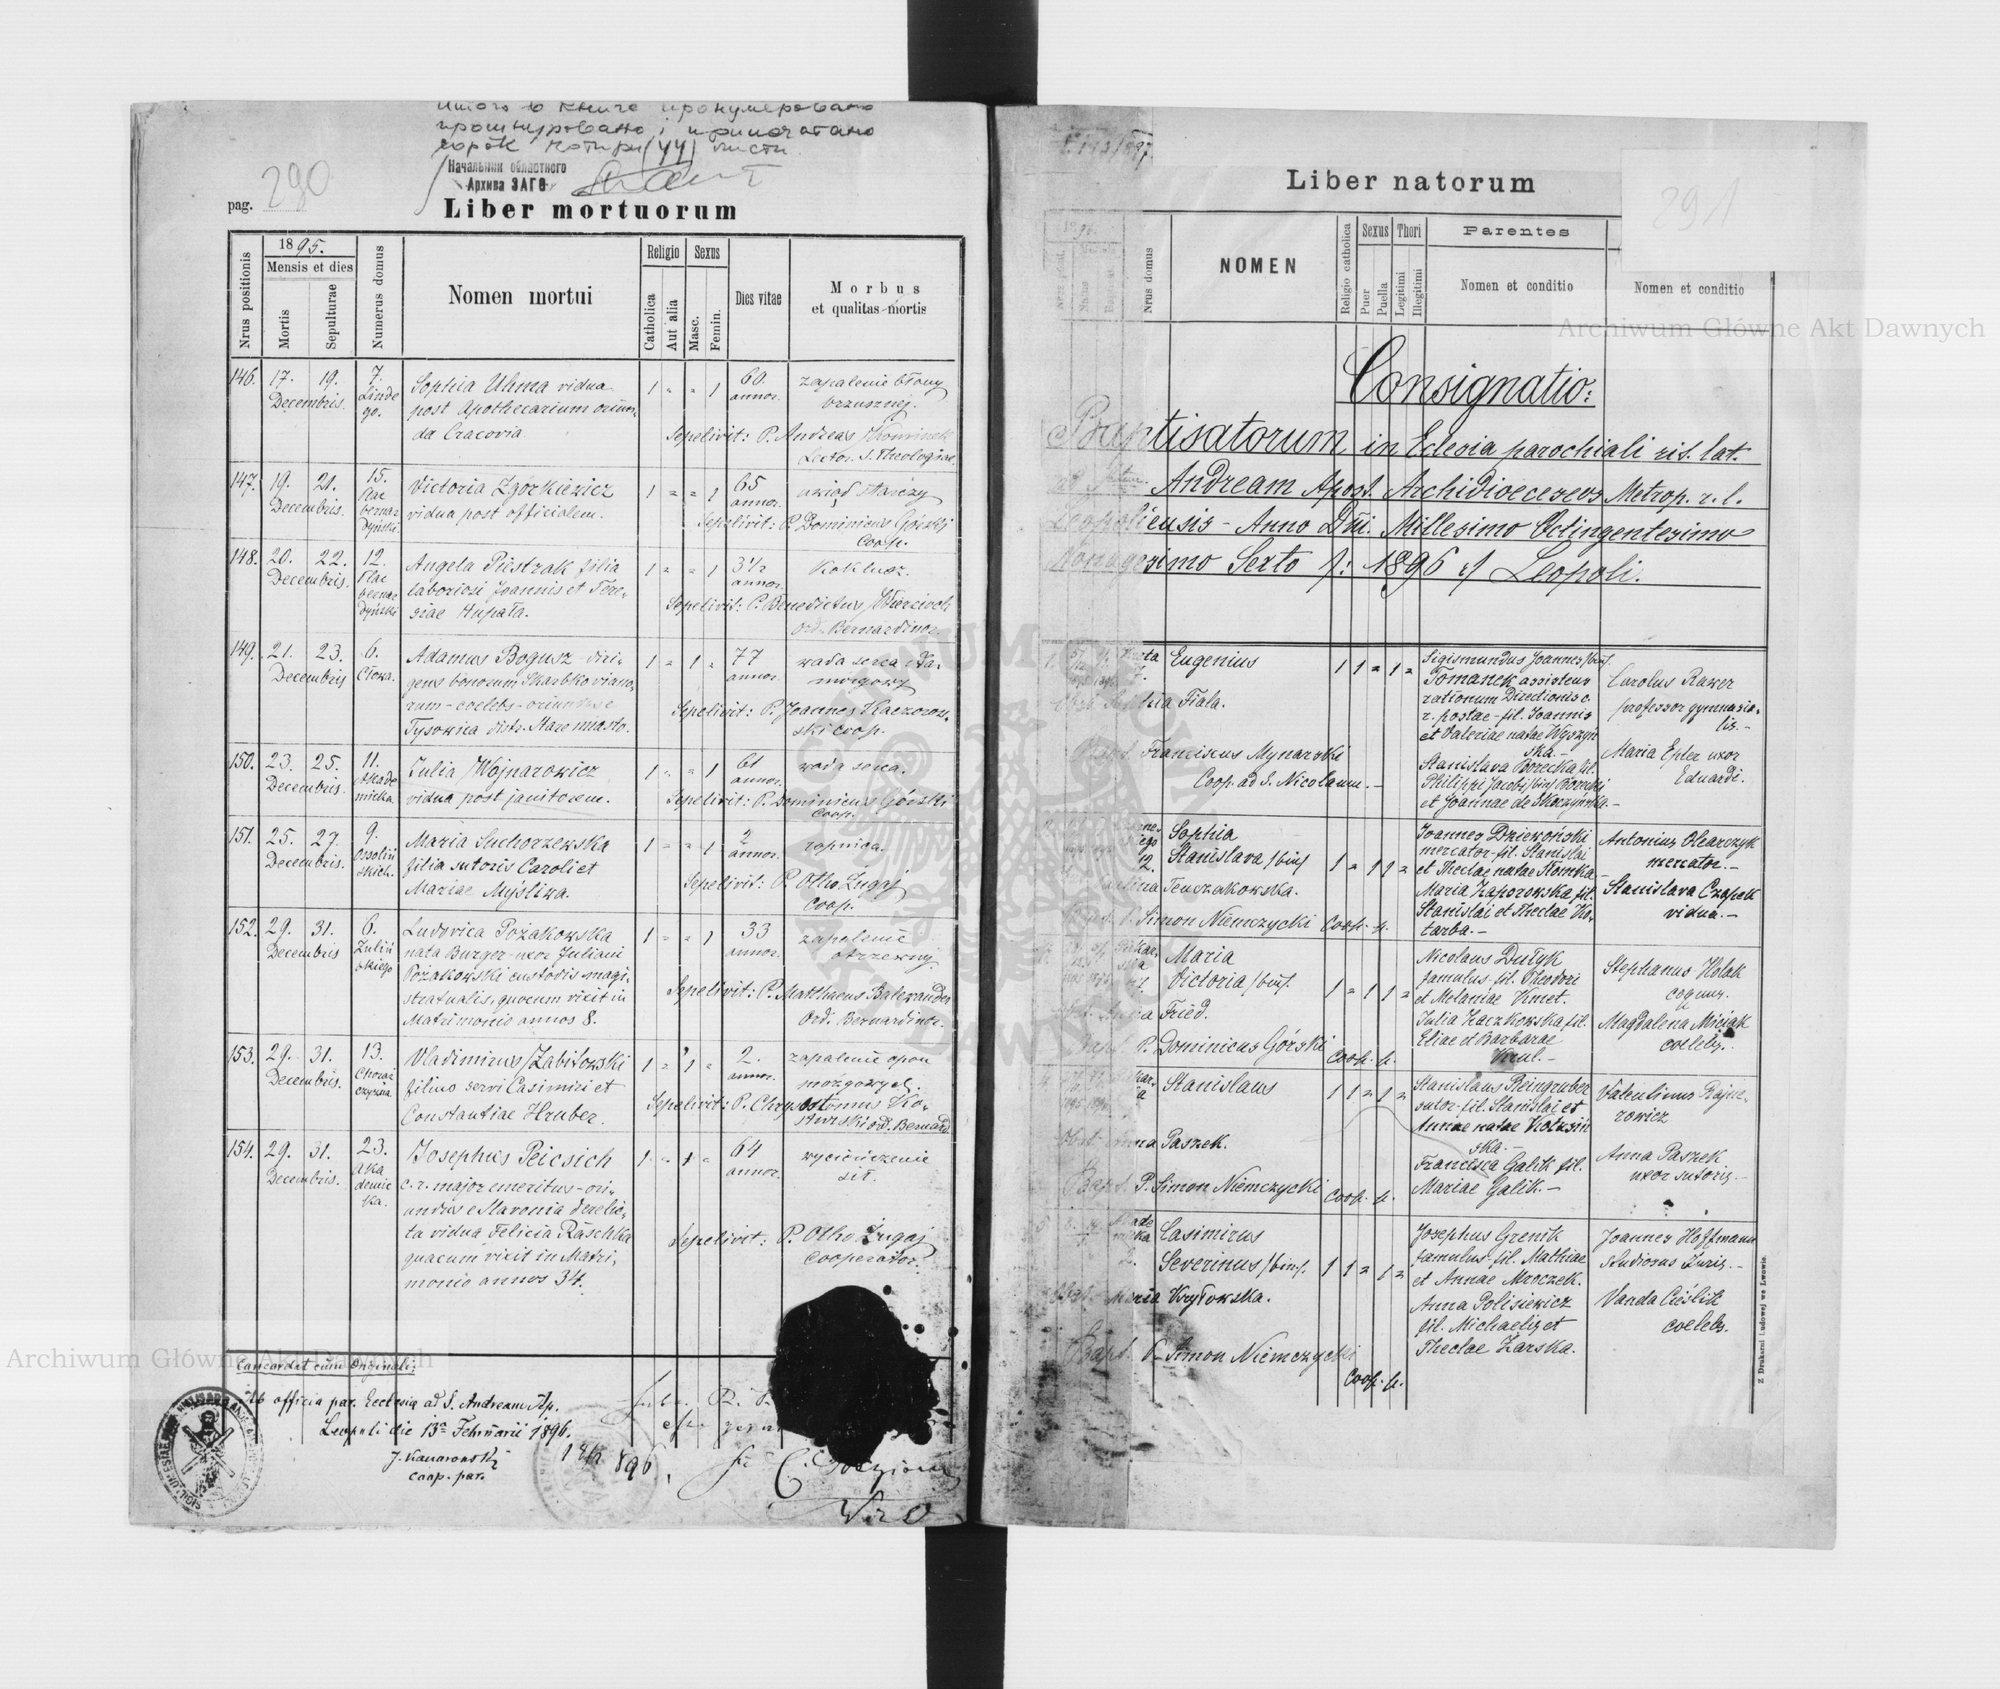 сорок чотири (44) листи
Начальник областного
Архива ЗАГС
290
pag.
Liber mortuorum
Nrus positionis
1895.
Mensis et dies
Mortis
Sepulturae
Numerus domus
Nomen mortui
Religio
Catholica
Aut alia
Sexus
Masc.
Femin.
Dies vitae
Morbus
et qualitas mortis
146. 17. 19. 7. Sophia Uhma vidua 1 " " 1 60 zapalenie błony
Decembris. Linde post Apothecarium oriun- annor. brzusznej.
go. da Cracovia Sepelivit: P. Andreas Kominek
Lector. S. Theologiae
147. 19. 21. 15. Victoria Zgorkiewicz 1 " " 1 65 uwiąd starczy
Decembris. Plac vidua post officialem. annor.
bernar Sepelivit: P. Dominicus Górski
dyński Coop.
148. 20. 22. 12. Angela Piestrak filia 1 " " 1 3½ Koklusz.
Decembris. Plac laboriosi Joannis et Tere- annor.
bernar siae Hupała. Sepelivit: P. Benedictus Wiercioch
dyński Ord. Bernardinor.
149. 21. 23. 6. Adamus Bogusz diri- 1 " 1 " 77 wada serca
Decembris Cłowa. gens bonorum Skarbkoviano- annor.
rum - coelebs - oriundus e Sepelivit: P. Joannes Kaczorow-
Tysowica distr. Stare miasto. ski coop.
150. 23. 25. 11. Julia Wojnarowicz 1 " " 1 61 wada serca.
Decembris. Akade vidua post janitorem. annor.
micka Sepelivit: P. Dominicus Górski
Coop.
151. 25. 27. 9. Maria Suchorzewska 1 " " 1 2 ropnica.
Decembris. Ossoliń filia sutoris Caroli et annor.
skich. Mariae Myśliwa. Sepelivit: P. Otho Zugaj
Coop.
152. 29. 31. 6. Ludovica Pożakowska 1 " " 1 33 zapalenie
Decembris Zuliń nata Burger - uxor Juliani annor. otrzewny.
skiego Pożakowski custodis magi-
stratualis, quocum vixit in Sepelivit: P. Matthaeus Balewander
Matrimonio annos 8. Ord. Bernardinor.
153. 29. 31. 13. Vladimirus Zabiłowski 1 " 1 " 2. zapalenie opon
Decembris. Chorąż filius servi Casimiri et annor. mózgowych.
czyzna Constantiae Hruber. Sepelivit: P. Chrysostomus
ord. Bernard.
154. 29. 31. 23. Josephus Peicsich 1 " 1 " 64 wycieńczenie
Decembris. Aka c. r. major emeritus - ori- annor. sił.
demic undus e Slavonia derelic-
ka. ta vidua Felicia Räschka Sepelivit: P. Otho Zugaj
quacum vixit in Matri- Cooperator.
monio annos 34.
Concordat cum Originali;
Ab officio par. Ecclesia ad S. Andream Ap.
Leopoli die 13a Februarii 1896.
coop. par.
896
Liber natorum
291
Nrus domus
NOMEN
Religio catholica
Sexus
Puer
Puella
Thori
Legitimi
Illegitimi
Parentes
Nomen et conditio
Nomen et conditio
Consignatio:
Baptisatorum in Eclesia parochiali rit. lat.
Andream Apost. Archidioeceseos Metrop. r. l.
Leopoliensis - Anno Dni. Millesimo Octingentesimo
Nonagesimo Sexto /: 1896 :/ Leopoli.
Eugenius 1 1 " 1 " Sigismundus Joannes /bin/. Carolus Rawer
Tomanek assistens professor gymnasia-
Fiala. rationum Directionis c. lis. -
r. postae - fil. Joannis
et Valeriae natae Wyszyń
ska. -
Franciscus Mynarski Stanislava Borecka fil. Maria Epler uxor
Coop. ad S. Nicolaum. - Philippi Jacobi /bin/ Borecki Eduardi.
et Joannae de Skarzyńska. -
Sophia Joannes Dziewoński Antonius Olearczyk
Stanislava /bin/ 1 " 1 1 " mercator - fil. Stanislai mercator. -
12. et Theclae natae Słomka.
Tenczakowska. Maria Zaporowska fil. Stanislava Czapek
Simon Niemczycki Coop. p. Stanislai et Theclae Ko- vidua. -
tarba. -
Maria Nicolaus Dutyk Stephanus Holak
Victoria /bin/. 1 " 1 1 " famulus - fil. Theodori coquus.
Fried. et Melaniae Kmet.
Julia Zaczkowska fil. Magdalena Miciak
Bapt. P. Dominicus Górski Coop. p. Eliae et Barbarae coelebs. -
Krul. -
Stanislaus 1 1 " 1 " Stanislaus Reingruber Valentinus
sutor - fil. Stanislai et rowicz
Anna Paszek. Annae natae Kolasiń
ska - Anna Paszek
Francisca Galik fil. uxor sutoris -
Bapt. P. Simon Niemczycki Coop. p. Mariae Galik. -
Casimirus Josephus Grenik Joannes Hoffmann
2. Severinus /bin/. 1 1 " 1 " famulus - fil. Mathiae studiosus Juris. -
Maria Kryłowska. et Annae Mroczek.
Anna Polisiewicz Vanda Cieślik
Bapt. P. Simon Niemczycki fil. Michaelis et coelebs.
Coop. p. Theclae Zarska.
Z Drukarni Ludowej we Lwowie.
Archiwum Główne Akt Dawnych
Archiwum Główne Akt Dawnych